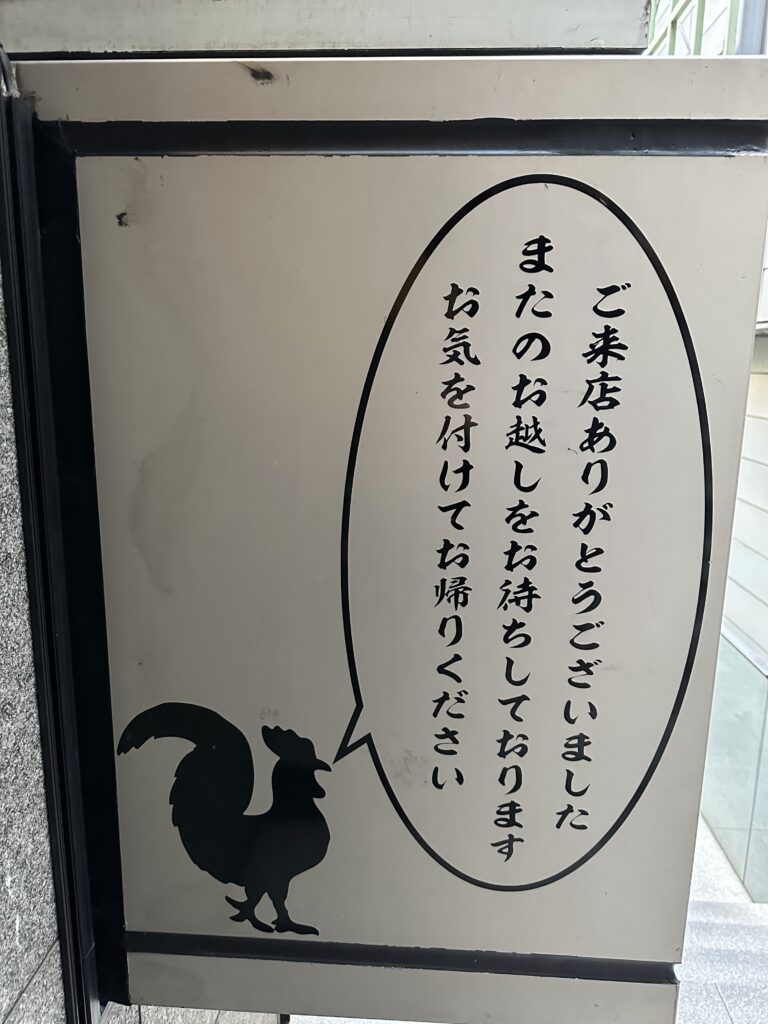 ご来店ありがとうございました
またのお越しをお待ちしております
お気を付けてお帰りください